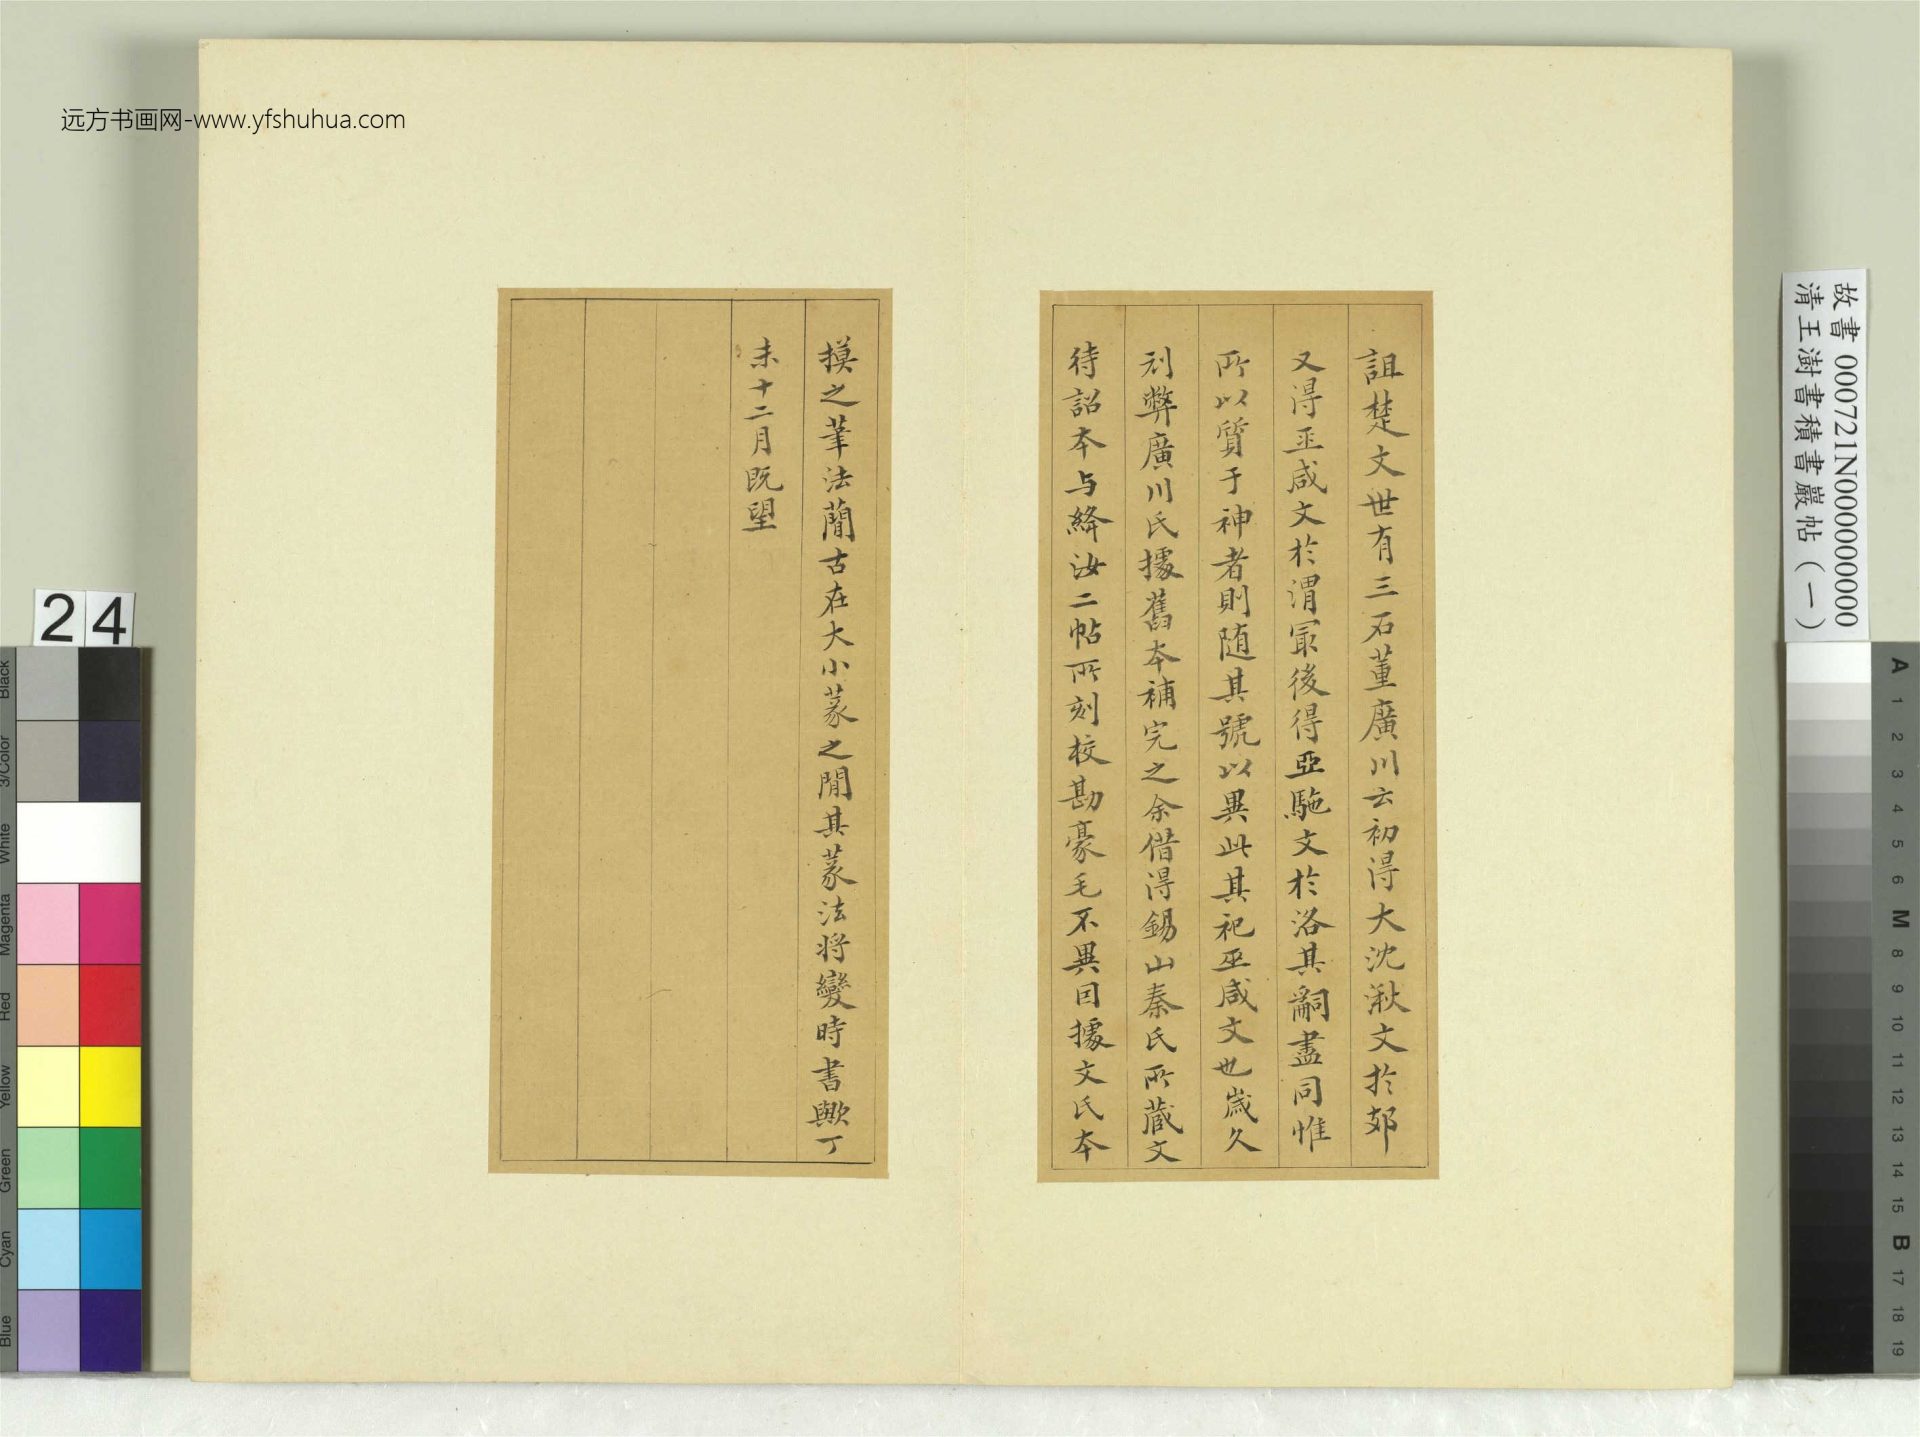 远方书画网-www.yfshuhua.com
詛楚文世有三石董廣川云初得大沈湫文於郊
又得巫咸文於渭冣後得亞駞文於洛其嗣盡同惟
所以質于神者則随其號以異此其祀巫咸文也歲久
刓弊廣川氏據舊本補完之余借得錫山秦氏所蔵文
待詔本与絳汝二帖所刻校勘豪毛不異因據文氏本
摸之筆法蕳古在大小篆之閒其篆法将變時書歟丁
未十二月既望
故書 000721N000000000
清王澍書積書巖帖（一）
24
Black
3/Color
White
Magenta
Red
Yellow
Green
Cyan
Blue
A
1
2
3
4
5
6
M
8
9
10
11
12
13
14
15
B
17
18
19